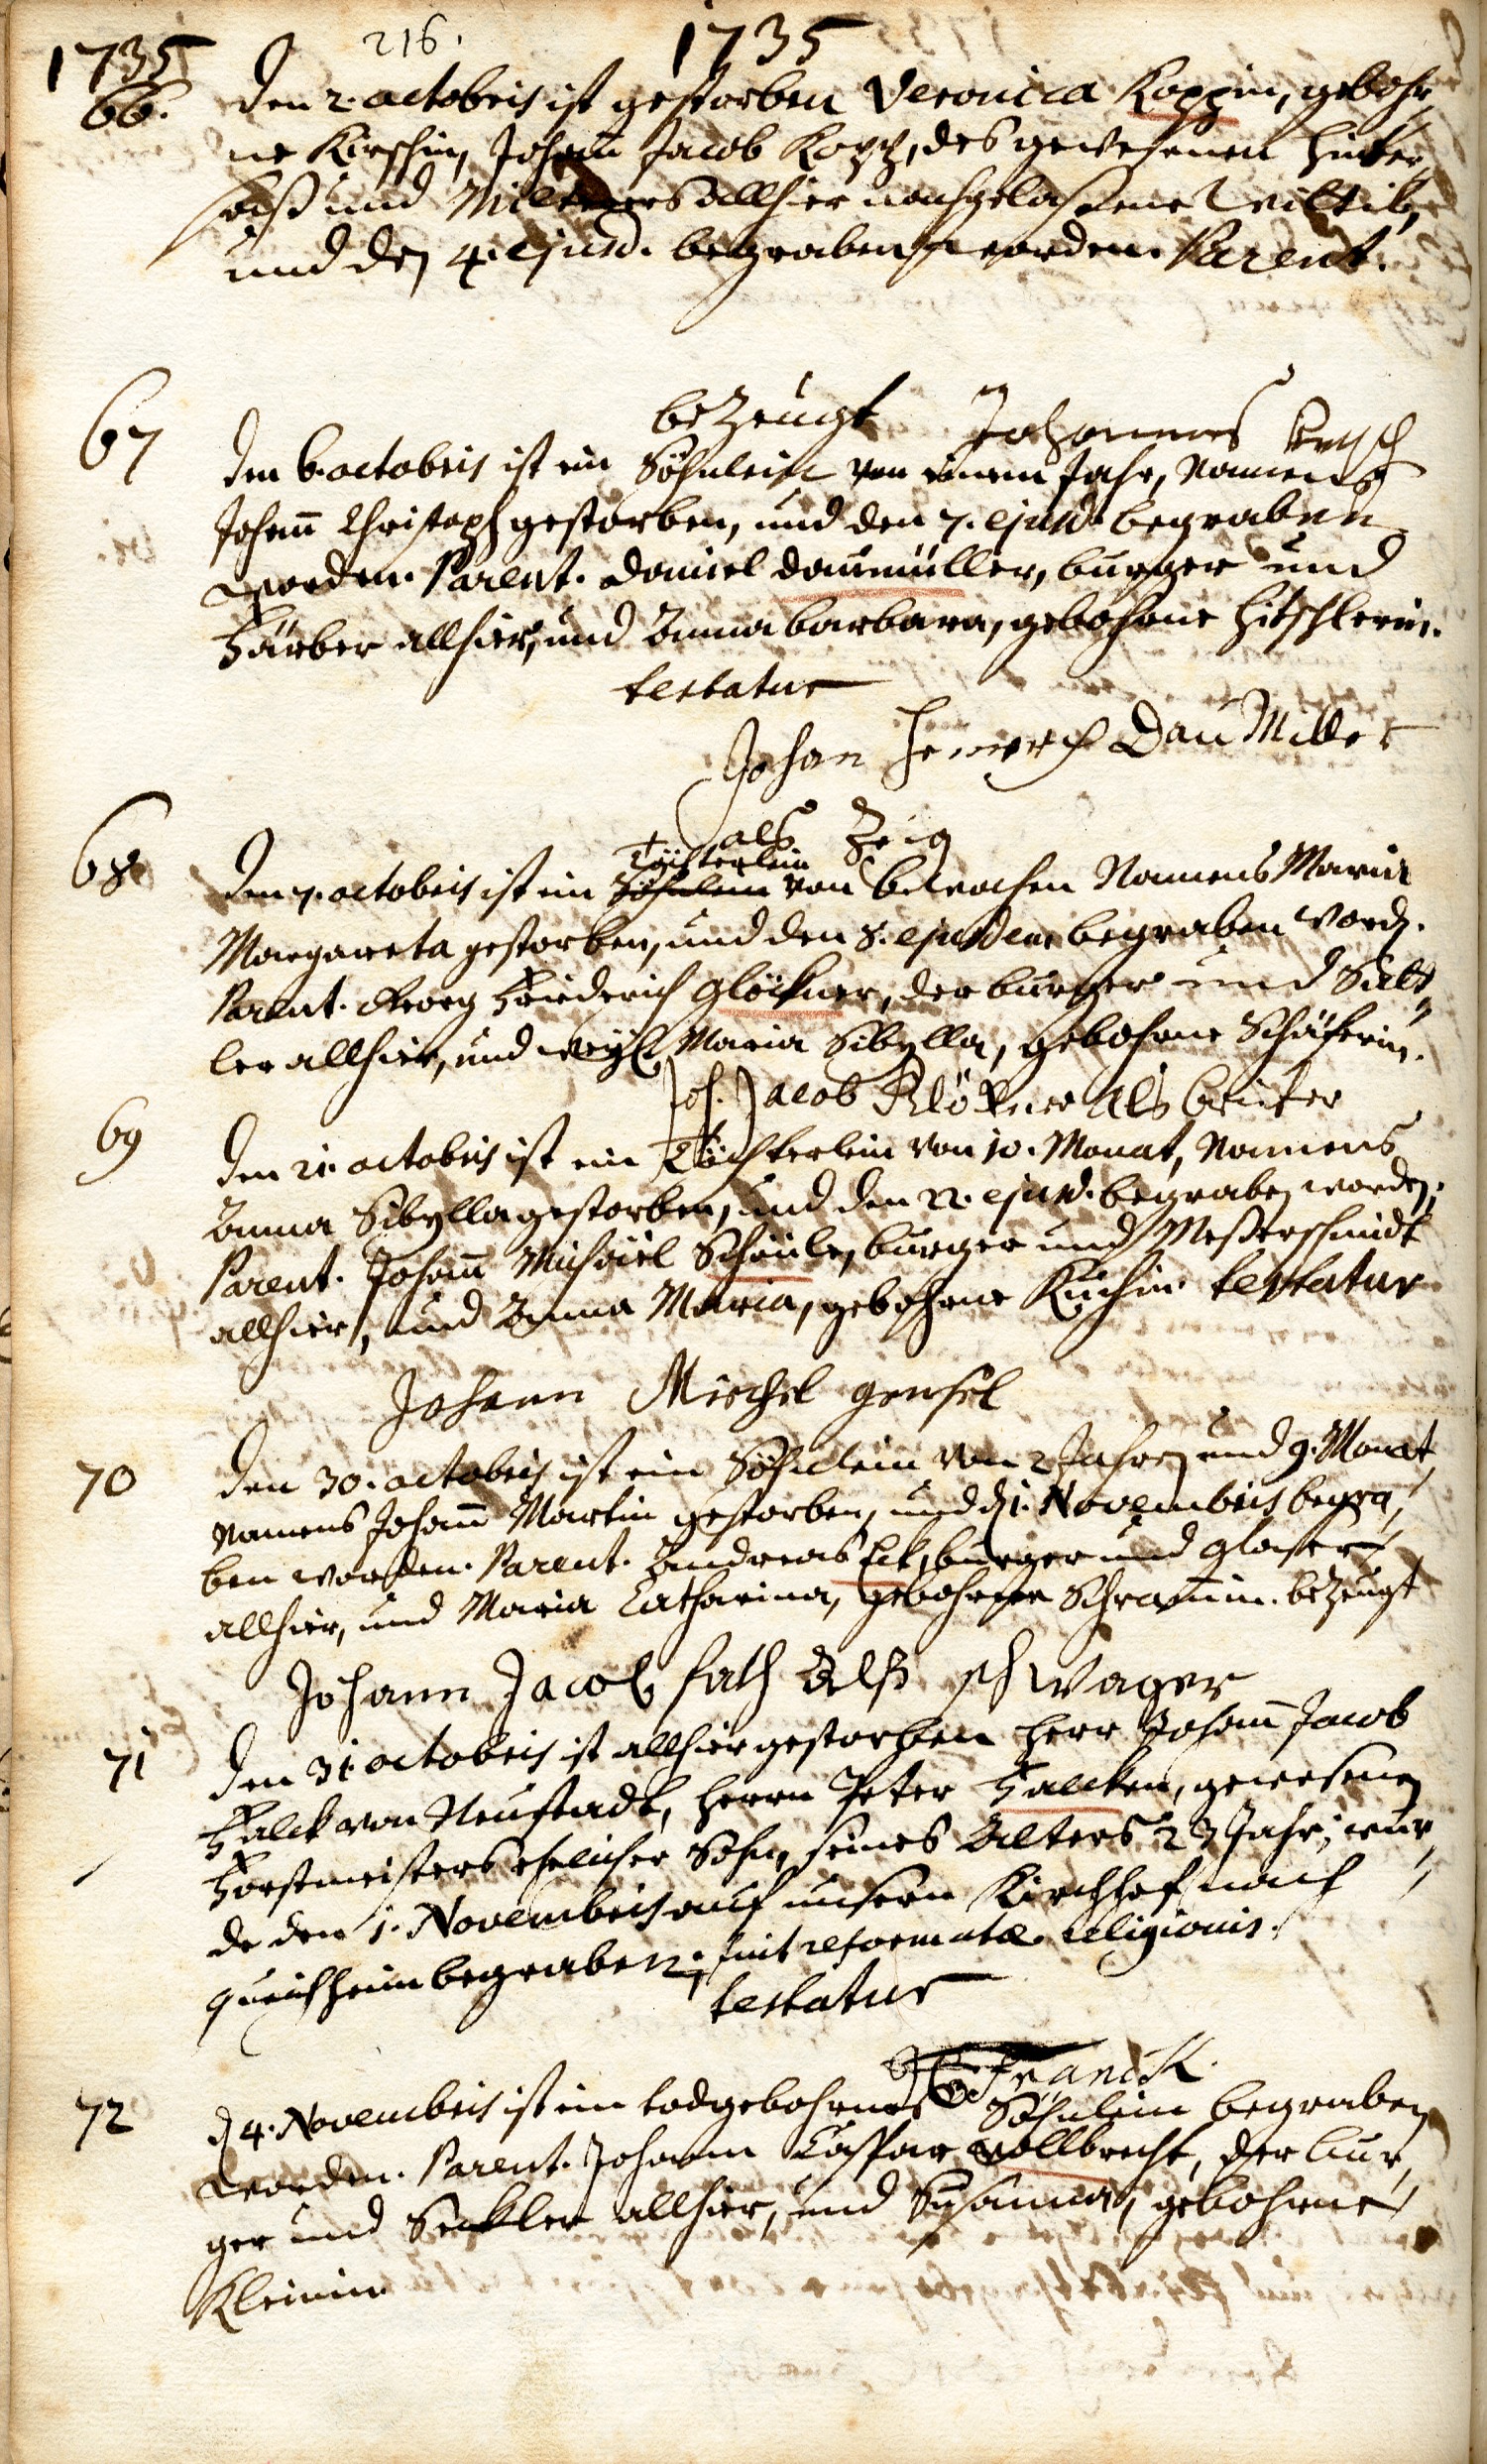 1735 216. 1735
66. Den 2. octobris ist gestorben Veronica Koppin, gebohr,
ne Kirschin, Johann Jacob Kopp, des gewesenen Hinter,
saß und allhier nachgelaßene Wittib,
und den 4. ejusd. begraben worden. Parent.
bezeugt Johannes
67 Den 6. octobris ist ein Söhnlein von einem Jahr, Namens
Johann Christoph gestorben, und den 7. ejusd. begraben
worden. Parent. Daniel Daumüller, burger und
Färber allhier, und Anna Barbara, gebohrne Hitschlerin.
testatur
Johan Henrich Dau Miller
als Zeig
68 Den 7. octobris ist ein Söhnlein Töchterlein von 6 Wochen Namens Maria
Margareta gestorben, und den 8. ejusdem begraben word.
Parent. Georg Friderich Glöckner, der burger und Satt,
ler allhier, und weyl. Maria Sibylla, gebohrne Schäferin.
Joh. Jacob Klöckner als bruter
69 Den 21. octobris ist ein Töchterlein von 10. Monat, Namens
Anna Sibylla gestorben, und den 22. ejusd. begraben worden;
Parent. Johann Michael Schäule, burger und Meßerschmidt
allhier, und Anna Maria, gebohrne Kuchin. testatur
Johann Michel gensel
70 Den 30. octobris ist ein Söhnlein von 2 Jahren und 9. Monat
Namens Johann Martin gestorben, und d. 1. Novembris begra,
ben worden. Parent. Andreas Eck, burger und Glaser
allhier, und Maria Catharina, gebohrne Schrammin. bezeugt
Johann Jacob fath Alß schwager
71 Den 31 octobris ist allhier gestorben Herr Johann Jacob
Falck von Neustadt, Herrn Peter Falcken, gewesenen
Forstmeisters ehelicher Sohn, seines Alters 23 Jahr; wur,
de den 1. Novembris auf unsern Kirchhof nach
Queichheim begraben; fuit reformatæ religionis.
testatur
Franck.
72 d 4. Novembris ist ein todgebohrnes Söhnlein begraben
worden. Parent. Johann Caspar Vollbrecht, der bur,
ger und Seckler allhier, und Susanna, gebohrne
Kleinin